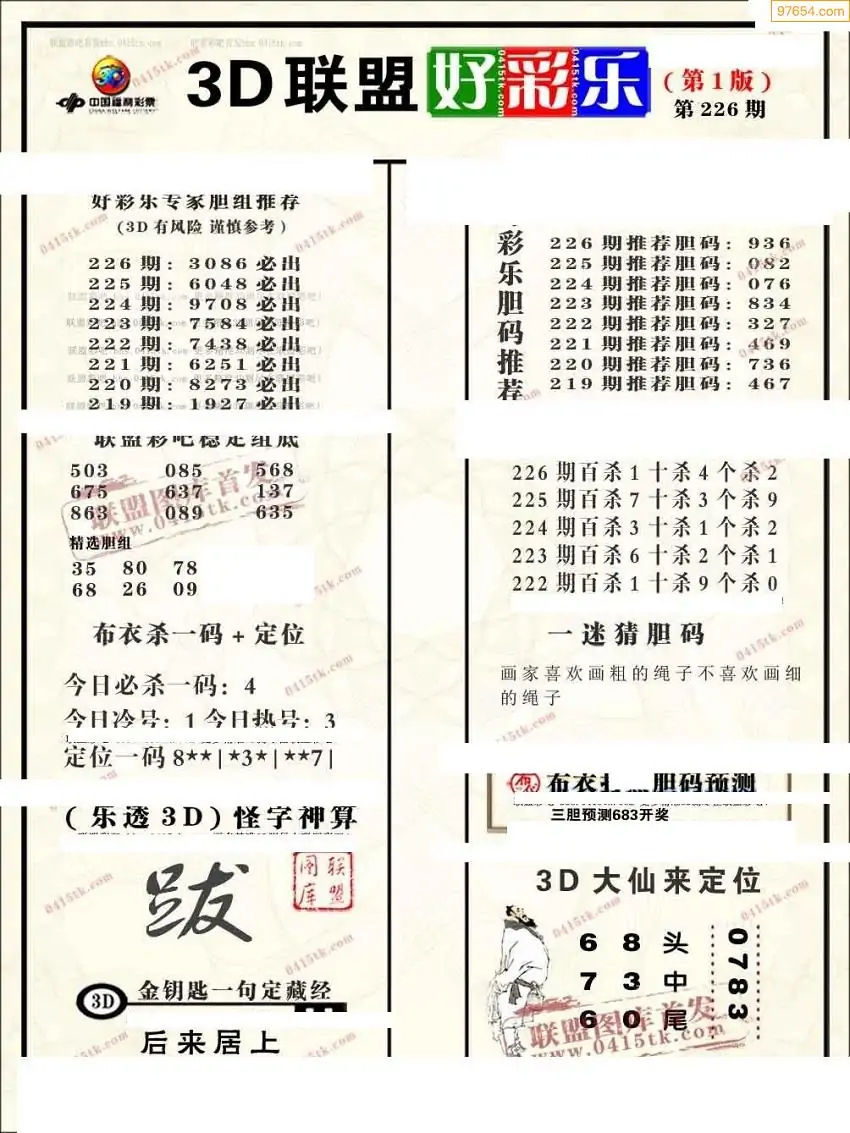 97654.com
3D联盟好彩乐
(第1版)
第226期
中国福利彩票
CHINA WELFARE LOTTERY
好彩乐专家胆组推荐
(3D有风险 谨慎参考)
226期: 3086必出
225期: 6048必出
224期: 9708必出
223期: 7584必出
222期: 7438必出
221期: 6251必出
220期: 8273必出
219期: 1927必出
联盟彩吧稳定组底
503 085 568
675 637 137
863 089 635
精选胆组
35 80 78
68 26 09
布衣杀一码+定位
今日必杀一码: 4
今日冷号: 1 今日热号: 3
定位一码8**|*3*|**7|
(乐透3D)怪字神算
跋
联盟图库
3D
金钥匙一句定藏经
后来居上
彩乐胆码推荐
226期推荐胆码: 936
225期推荐胆码: 082
224期推荐胆码: 076
223期推荐胆码: 834
222期推荐胆码: 327
221期推荐胆码: 469
220期推荐胆码: 736
219期推荐胆码: 467
226期百杀1十杀4个杀2
225期百杀7十杀3个杀9
224期百杀3十杀1个杀2
223期百杀6十杀2个杀1
222期百杀1十杀9个杀0
一迷猜胆码
画家喜欢画粗的绳子不喜欢画细
的绳子
胆码预测
三胆预测683开奖
3D大仙来定位
6 8 头
7 3 中
6 0 尾
0783
联盟图库首发
www.0415tk.com